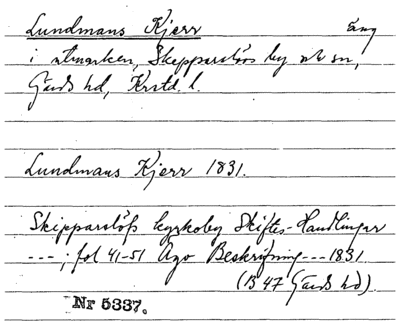 Lundmans Kjerr äng
i utmarken, Skepparslövs by ok sn,
Gärds hd, Krstd. l.
Lundmans Kjerr 1831.
Skipparslöfs kyrkoby Skiftes-Handlingar
---; fol 41-51 Ägo Beskrifning --- 1831
(B 47 Gärds hd)
Nr 5337.